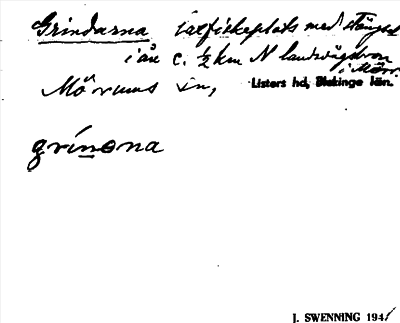 Grindarna laxfiskeplats med stängsel
i ån c. ½ km N landsvägsbron
i Mörr.
Mörrums sn, Listers hd, Blekinge län.
grinona
J. SWENNING 1941